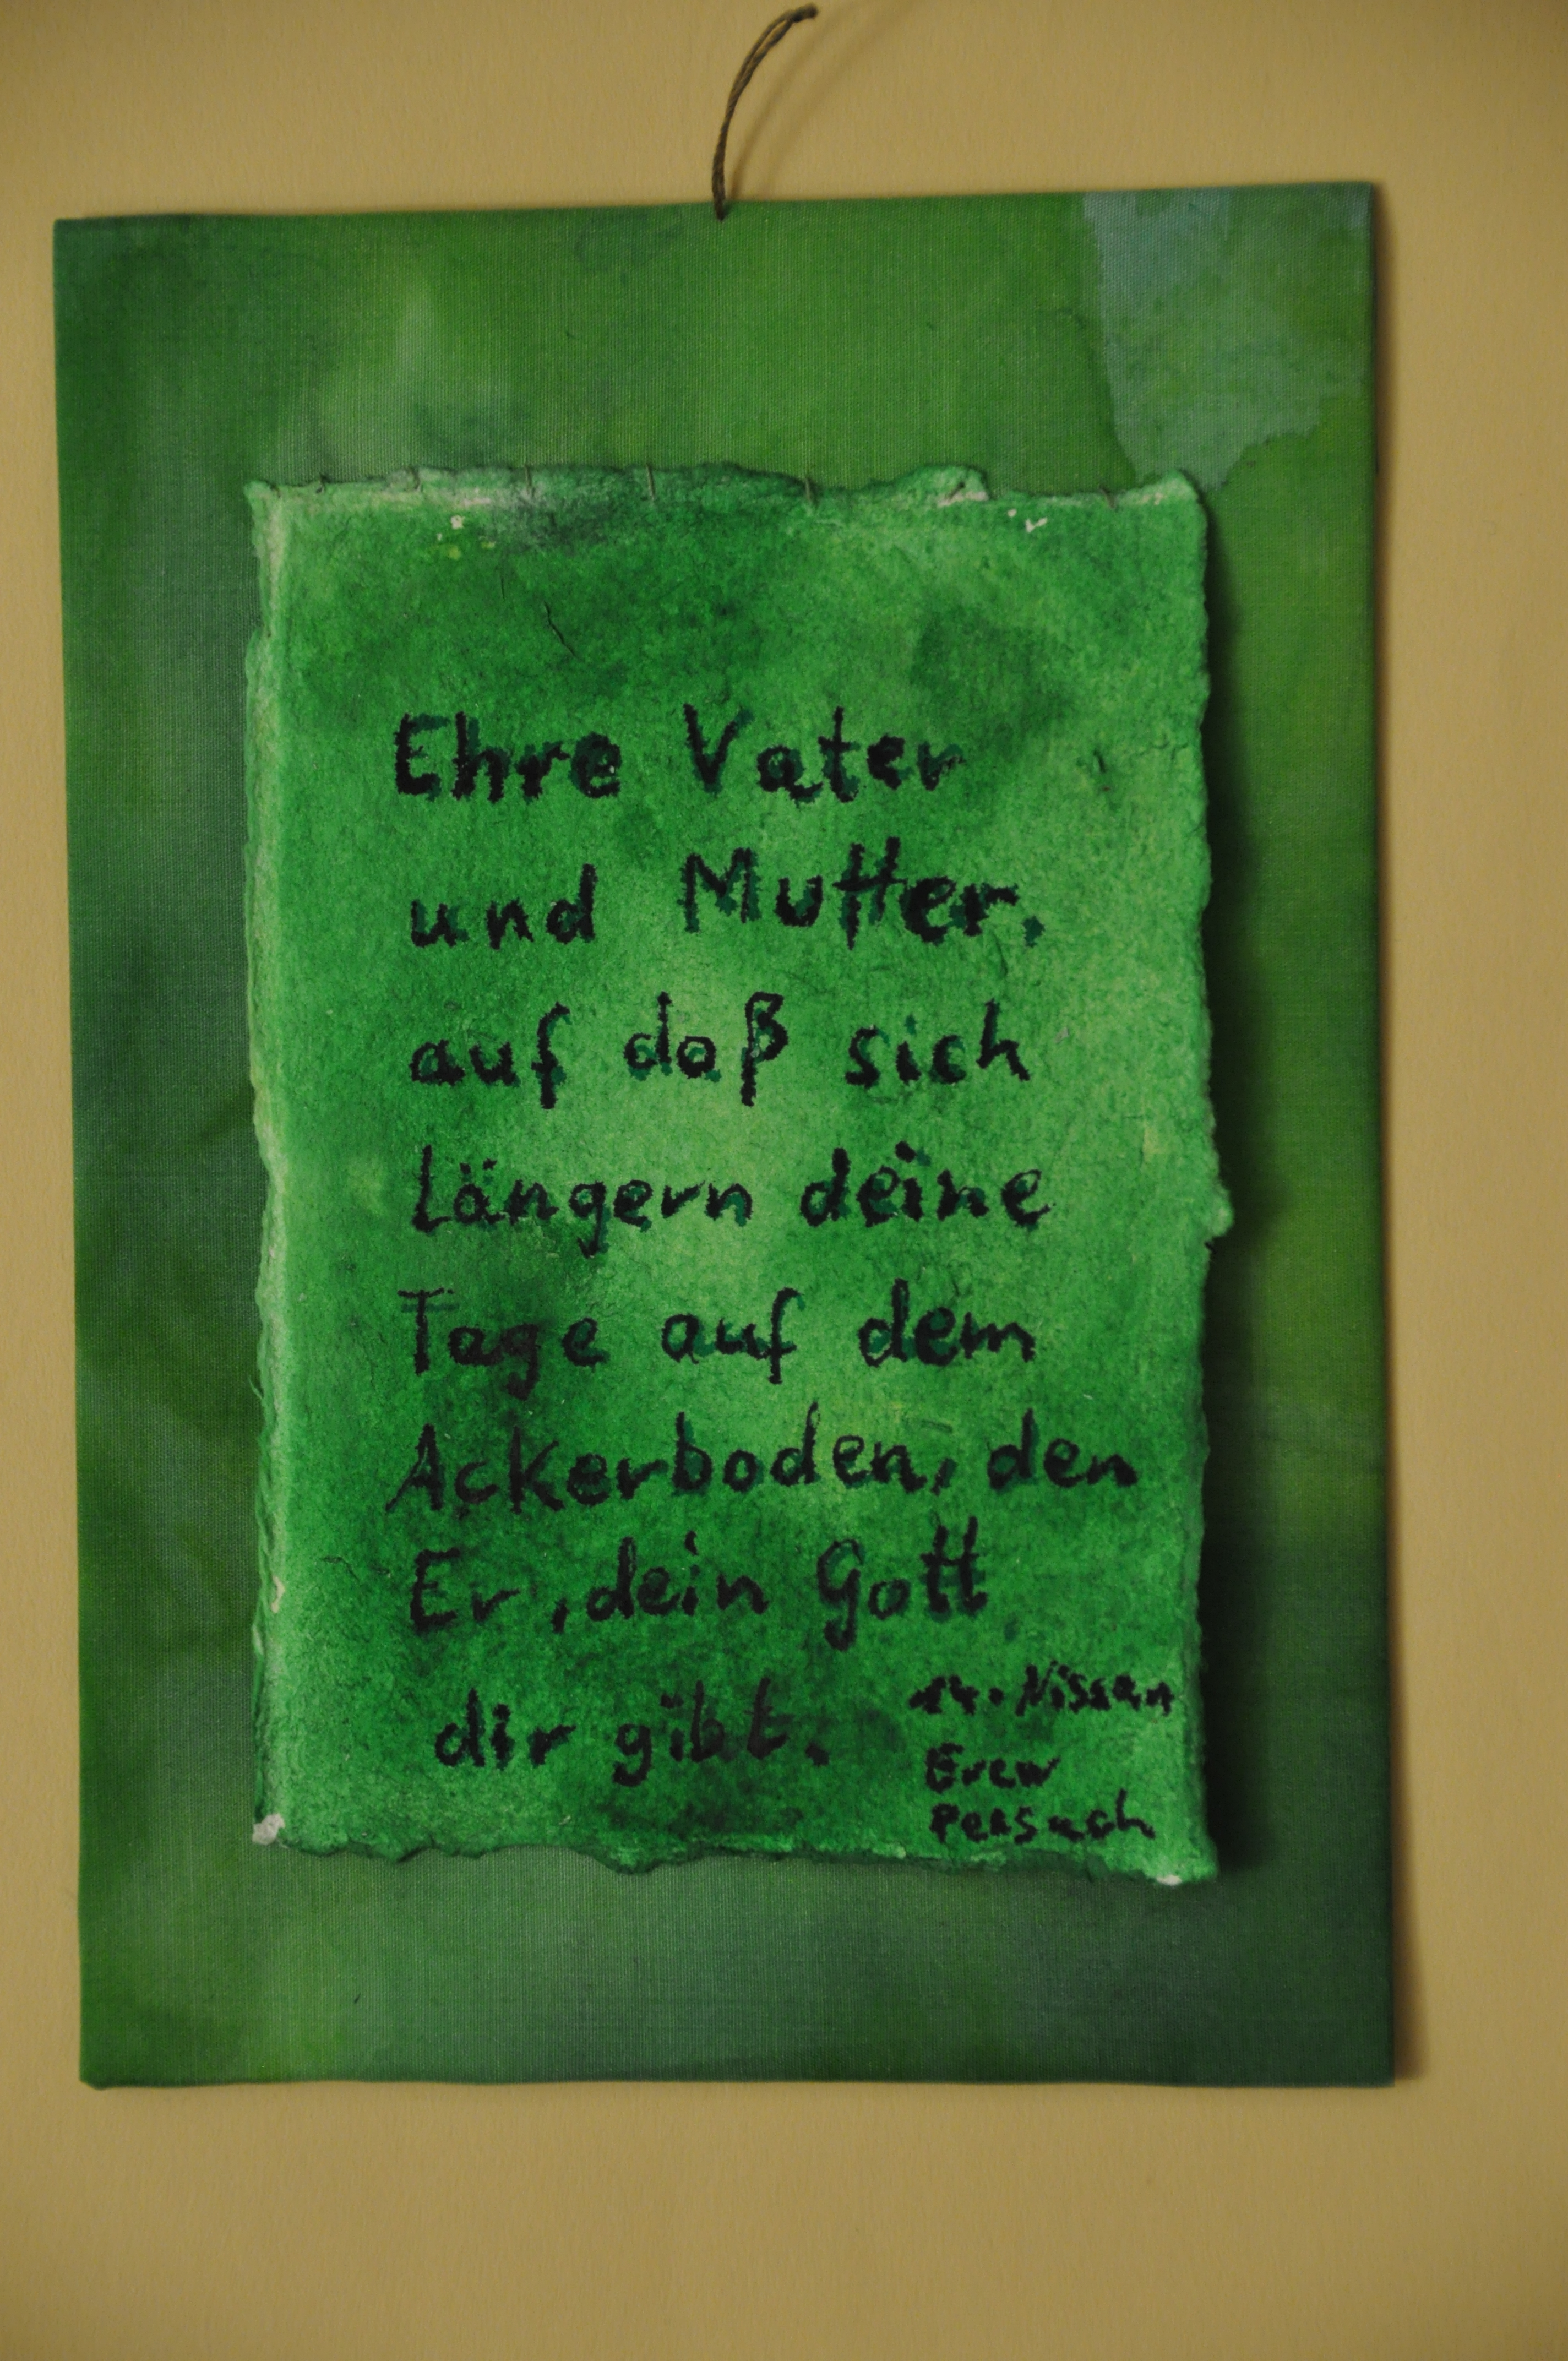 Ehre Vater
und Mutter,
auf daß sich
längern deine
Tage auf dem
Ackerboden, den
Er, dein Gott
dir gibt.
14. Nissan
Erew
Pessach